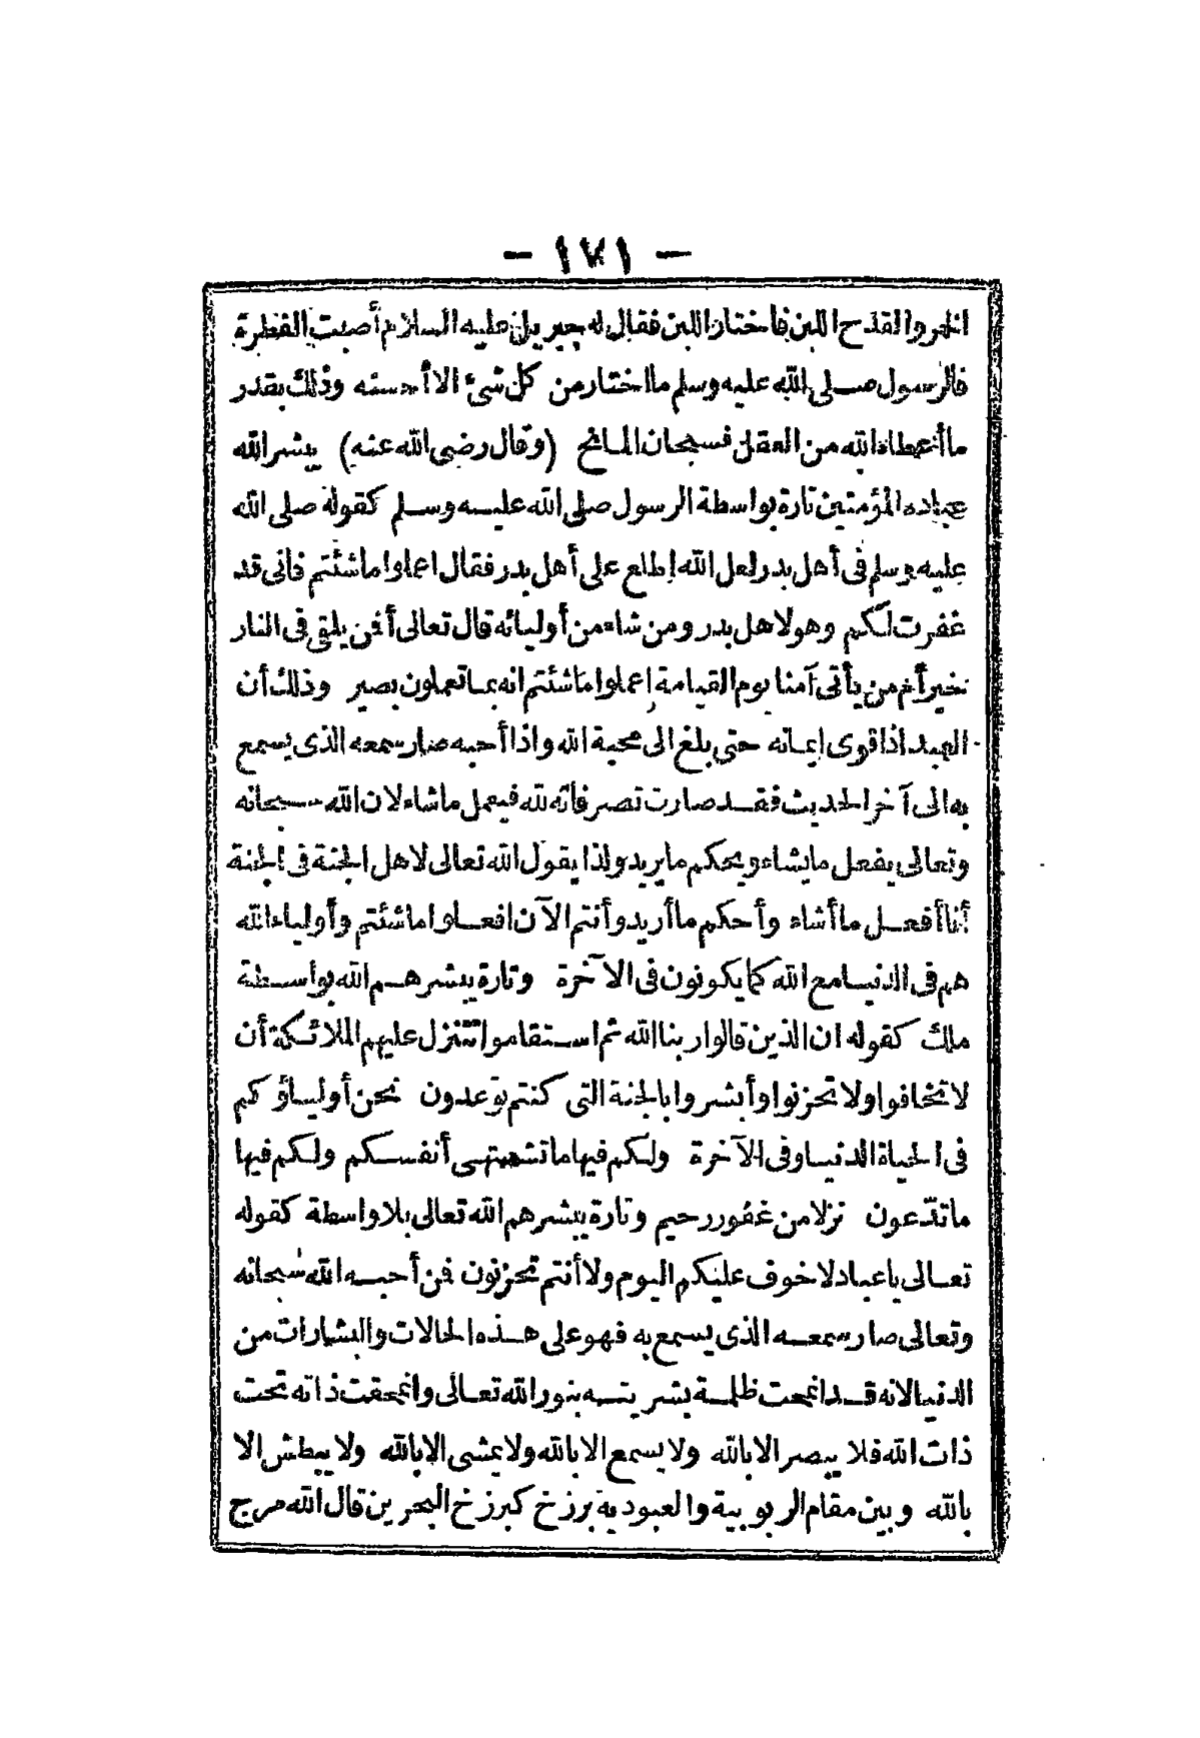 - ١٧١ -
الخمر والقدح اللبن فاختار اللبن فقال له جبريل عليه السلام أصبت الفطرة
فالرسول صلى الله عليه وسلم ما اختار من كل شئ الا أحسنه وذلك بقدر
ما أعطاه الله من العقل فسبحان المانح (وقال رضى الله عنه) يبشر الله
عباده المؤمنين تارة بواسطة الرسول صلى الله عليه وسلم كقوله صلى الله
عليه وسلم فى أهل بدر لعل الله إطلع على أهل بدر فقال اعملوا ما شئتم فانى قد
غفرت لكم وهو لاهل بدر ومن شاء من أوليائه قال تعالى أفمن يلقى فى النار
خير أم من يأتى آمنا يوم القيامة إعملوا ما شئتم انه بما تعملون بصير وذلك أن
العبد اذا قوى إيمانه حتى بلغ الى محبة الله واذا أحبه صار سمعه الذى يسمع
به الى آخر الحديث فقد صارت تصرفاته لله فيعمل ما شاء لان الله سبحانه
وتعالى يفعل ما يشاء ويحكم ما يريد ولذا يقول الله تعالى لاهل الجنة فى الجنة
أنا أفعل ما أشاء وأحكم ما أريد وأنتم الآن افعلوا ما شئتم وأولياء الله
هم فى الدنيا مع الله كما يكونون فى الآخرة وتارة يبشرهم الله بواسطة
ملك كقوله ان الذين قالوا ربنا الله ثم استقاموا تتنزل عليهم الملائكة أن
لا تخافوا ولا تحزنوا وأبشروا بالجنة التى كنتم توعدون نحن أولياؤكم
فى الحياة الدنيا وفى الآخرة ولكم فيها ما تشتهى أنفسكم ولكم فيها
ما تدّعون نزلا من غفور رحيم وتارة يبشرهم الله تعالى بلا واسطة كقوله
تعالى يا عباد لا خوف عليكم اليوم ولا أنتم تحزنون فمن أحبه الله سبحانه
وتعالى صار سمعه الذى يسمع به فهو على هذه الحالات والبشارات من
الدنيا لانه قد انمحت ظلمة بشريته بنور الله تعالى وانمحقت ذاته تحت
ذات الله فلا يبصر الا بالله ولا يسمع الا بالله ولا يمشى الا بالله ولا يبطش الا
بالله وبين مقام الربوبية والعبودية برزخ كبرزخ البحرين قال الله مرج